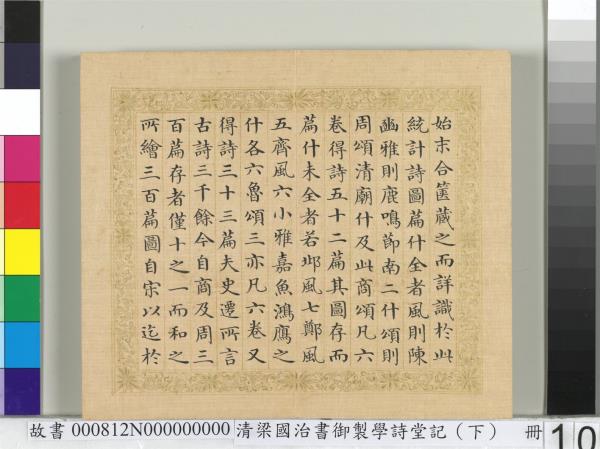 始末合篋藏之而詳識於此
統計詩圖篇什全者風則陳
豳雅則鹿鳴節南二什頌則
周頌清廟什及此商頌凡六
卷得詩五十二篇其圖存而
篇什未全者若邶風七鄭風
五齊風六小雅嘉魚鴻鴈之
什各六魯頌三亦凡六卷又
得詩三十三篇夫史遷所言
古詩三千餘今自商及周三
百篇存者僅十之一而和之
所繪三百篇圖自宋以迄於
故書 000812N000000000 清梁國治書御製學詩堂記（下） 冊 10